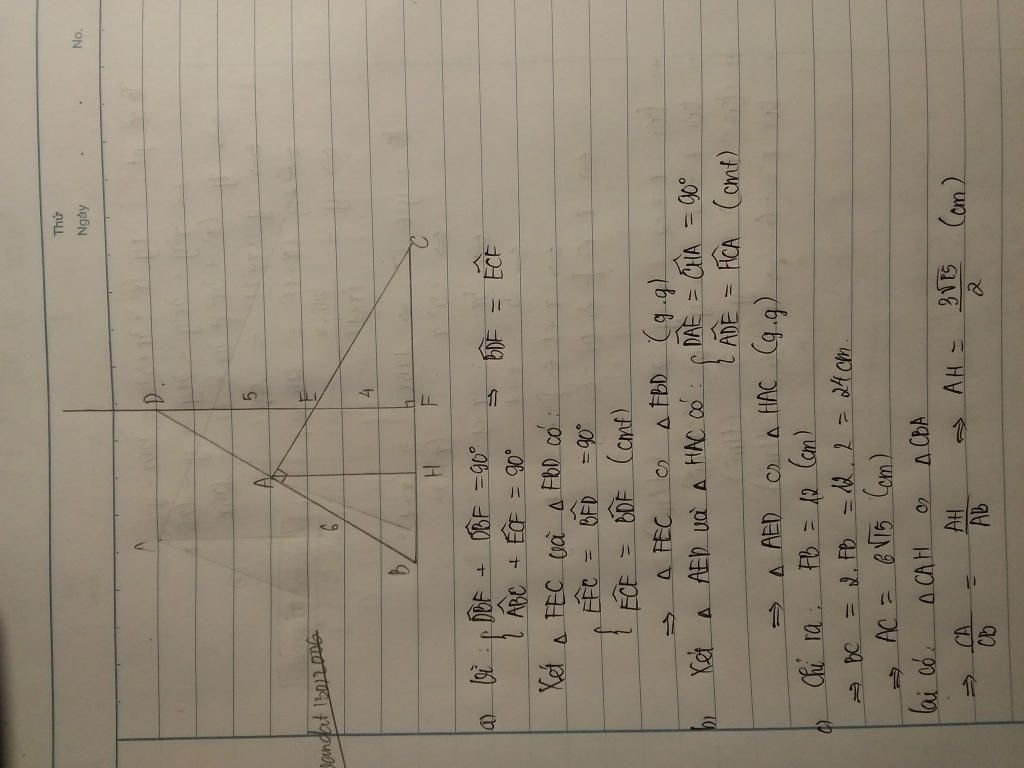 Thứ
Ngày . . No.
A
D
5
A
E
6
4
B
H
F
C
vandat13012006
a) Vì: { D̂BF + D̂BF = 90°
ÂBC + ÊCF = 90° ⇒ B̂DF = ÊCF
Xét △ FEC và △ FBD có:
{ ÊFC = B̂FD = 90°
ÊCF = B̂DF (cmt)
⇒ △ FEC ∽ △ FBD (g.g)
b) Xét △ AED và △ HAC có: { D̂AE = ĈHA = 90°
ÂDE = ĤCA (cmt)
⇒ △ AED ∽ △ HAC (g.g)
c) Chỉ ra: FB = 12 (cm)
⇒ BC = 2. FB = 12. 2 = 24cm.
⇒ AC = 6√15 (cm)
Lại có. △ CAH ∽ △ CBA
⇒ CA/CB = AH/AB ⇒ AH = 3√15/2 (cm)